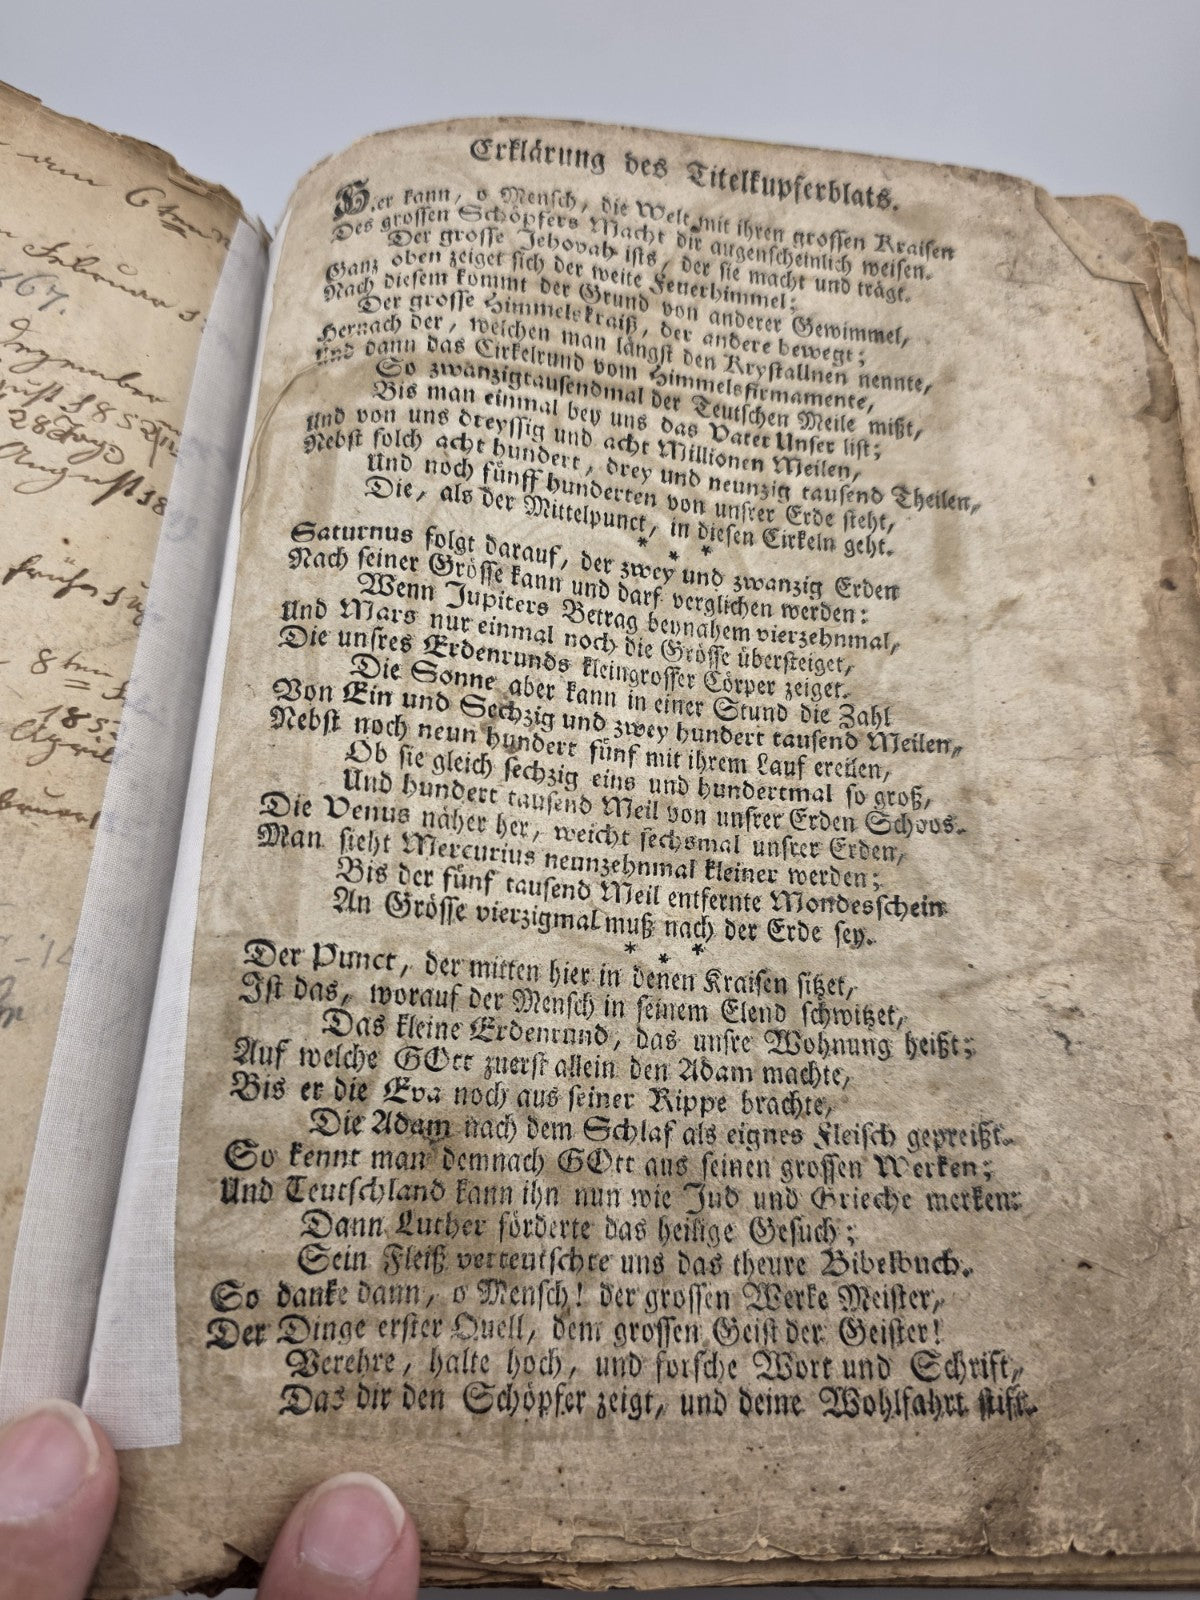 6ten
Februar
1867.
Dezember
August 1852
28 Tage
August 18
früher
8ten
185
April
Erklärung des Titelkupferblats.
Hier kann, o Mensch, die Welt mit ihren grossen Kraisen
Des grossen Schöpfers Macht dir augenscheinlich weisen.
Der grosse Jehovah ists, der sie macht und trägt.
Ganz oben zeiget sich der weite Feuerhimmel;
Nach diesem kommt der Grund von anderer Gewimmel,
Der grosse Himmelskraiß, der andere bewegt;
Hernach der, welchen man längst den Krystallnen nennte,
Und dann das Cirkelrund vom Himmelsfirmamente,
So zwanzigtausendmal der Teutschen Meile mißt,
Bis man einmal bey uns das Vater Unser list;
Und von uns dreyssig und acht Millionen Meilen,
Nebst solch acht hundert, drey und neunzig tausend Theilen,
Und noch fünff hunderten von unsrer Erde steht,
Die, als der Mittelpunct, in diesen Cirkeln geht.
* * *
Saturnus folgt darauf, der zwey und zwanzig Erden
Nach seiner Grösse kann und darf verglichen werden:
Wenn Jupiters Betrag beynahem vierzehnmal,
Und Mars nur einmal noch die Grösse übersteiget,
Die unsres Erdenrunds kleingrosser Cörper zeiget.
Die Sonne aber kann in einer Stund die Zahl
Von Ein und Sechzig und zwey hundert tausend Meilen,
Nebst noch neun hundert fünf mit ihrem Lauf ereilen,
Ob sie gleich sechzig eins und hundertmal so groß,
Und hundert tausend Meil von unsrer Erden Schoos.
Die Venus näher her, weicht sechsmal unsrer Erden,
Man sieht Mercurius neunzehnmal kleiner werden;
Bis der fünf tausend Meil entfernte Mondesschein
An Grösse vierzigmal muß nach der Erde sey.
* * *
Der Punct, der mitten hier in denen Kraisen sitzet,
Ist das, worauf der Mensch in seinem Elend schwitzet,
Das kleine Erdenrund, das unsre Wohnung heißt;
Auf welche GOtt zuerst allein den Adam machte,
Bis er die Eva noch aus seiner Rippe brachte,
Die Adam nach dem Schlaf als eignes Fleisch gepreißt.
So kennt man demnach GOtt aus seinen grossen Werken;
Und Teutschland kann ihn nun wie Jud und Grieche merken:
Dann Luther förderte das heilige Gesuch;
Sein Fleiß verteutschte uns das theure Bibelbuch.
So danke dann, o Mensch! der grossen Werke Meister,
Der Dinge erster Quell, dem grossen Geist der Geister!
Verehre, halte hoch, und forsche Wort und Schrift,
Das dir den Schöpfer zeigt, und deine Wohlfahrt stift.